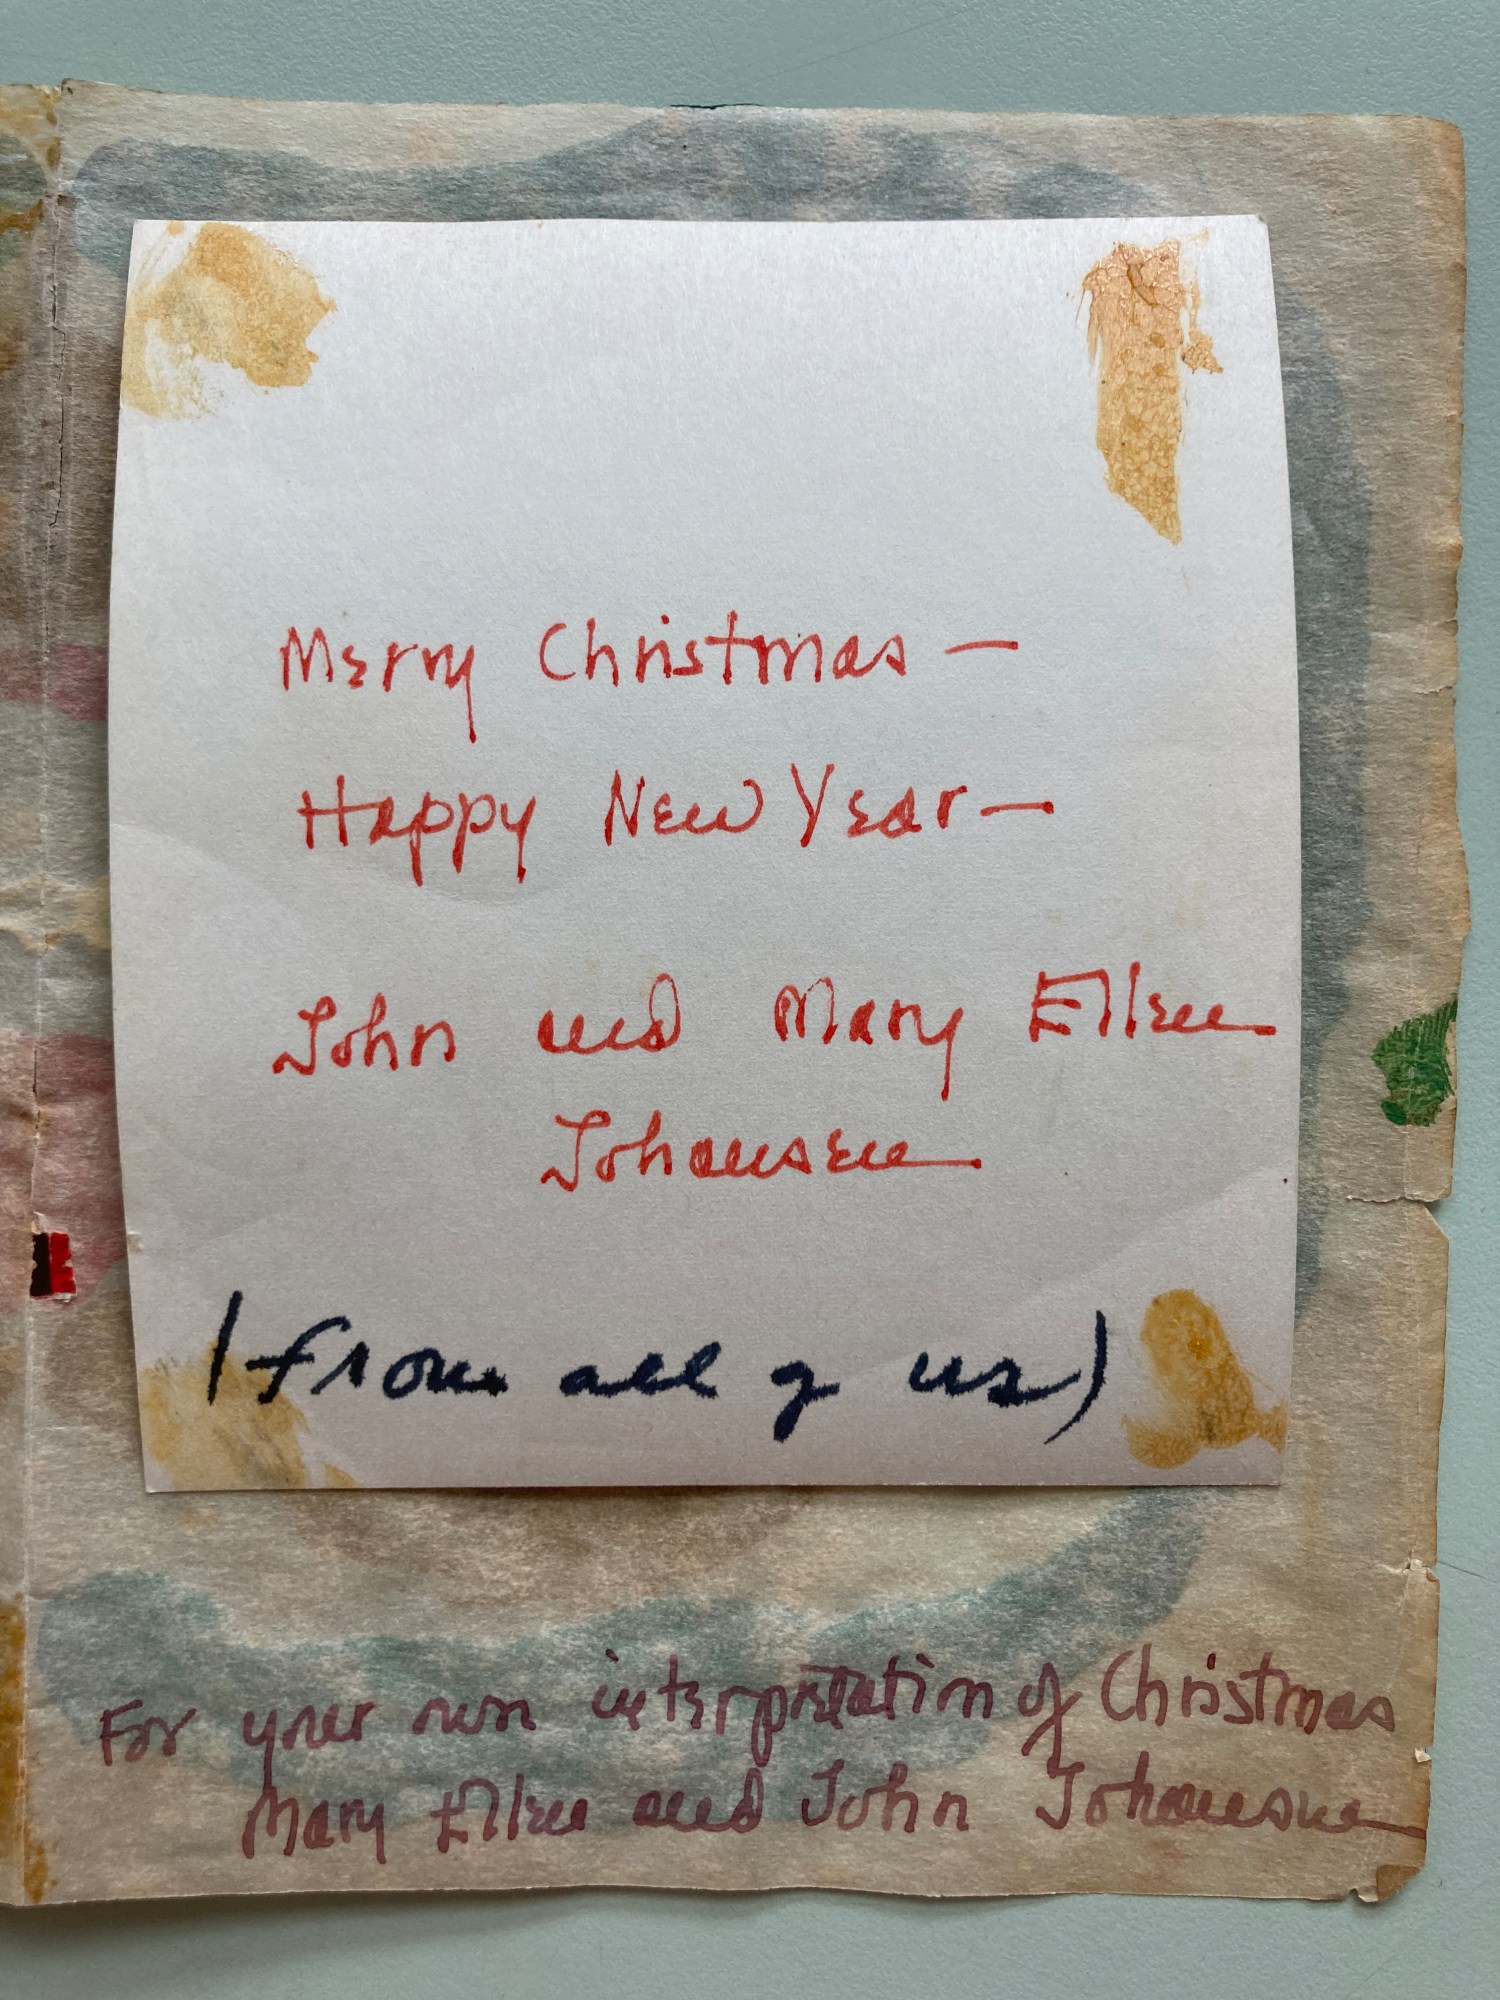 Merry Christmas —
Happy New Year —
John and Mary Ellen
Johansen
(from all of us)
For your own interpretation of Christmas
Mary Ellen and John Johansen